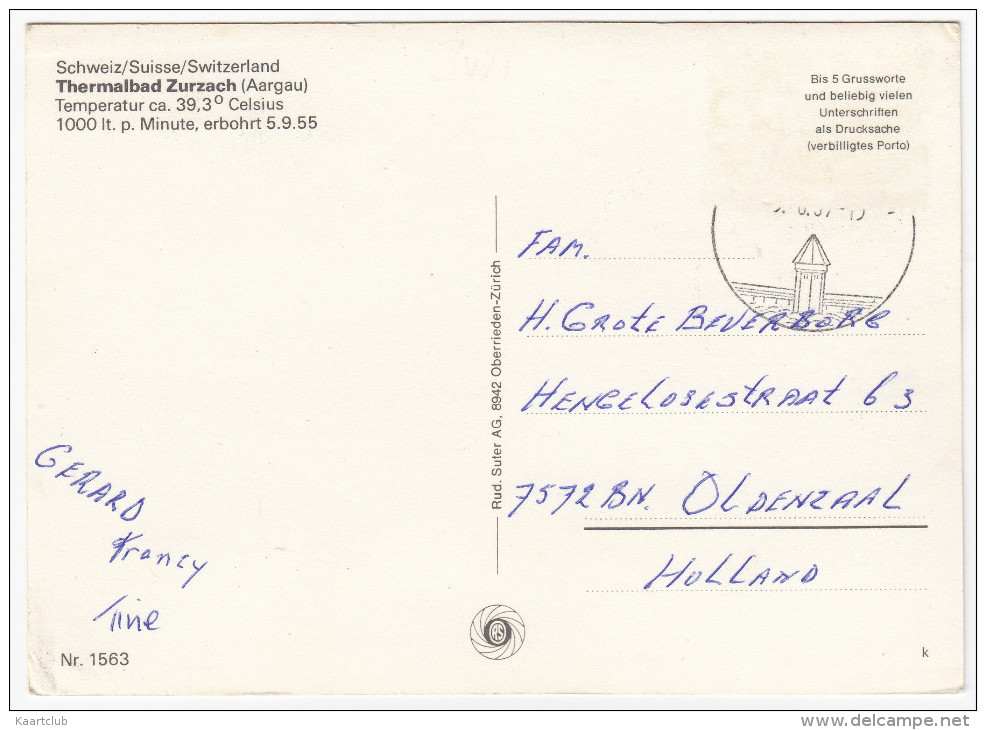 Schweiz/Suisse/Switzerland
Thermalbad Zurzach (Aargau)
Temperatur ca. 39,3° Celsius
1000 lt. p. Minute, erbohrt 5.9.55
Bis 5 Grussworte
und beliebig vielen
Unterschriften
als Drucksache
(verbilligtes Porto)
FAM.
H. GROTE BEVERBORG
HENGELOSESTRAAT 63
7572 BN. OLDENZAAL
HOLLAND
Rud. Suter AG, 8942 Oberrieden-Zürich
GERARD
Francy
Tine
Nr. 1563
k
Kaartclub
www.delcampe.net